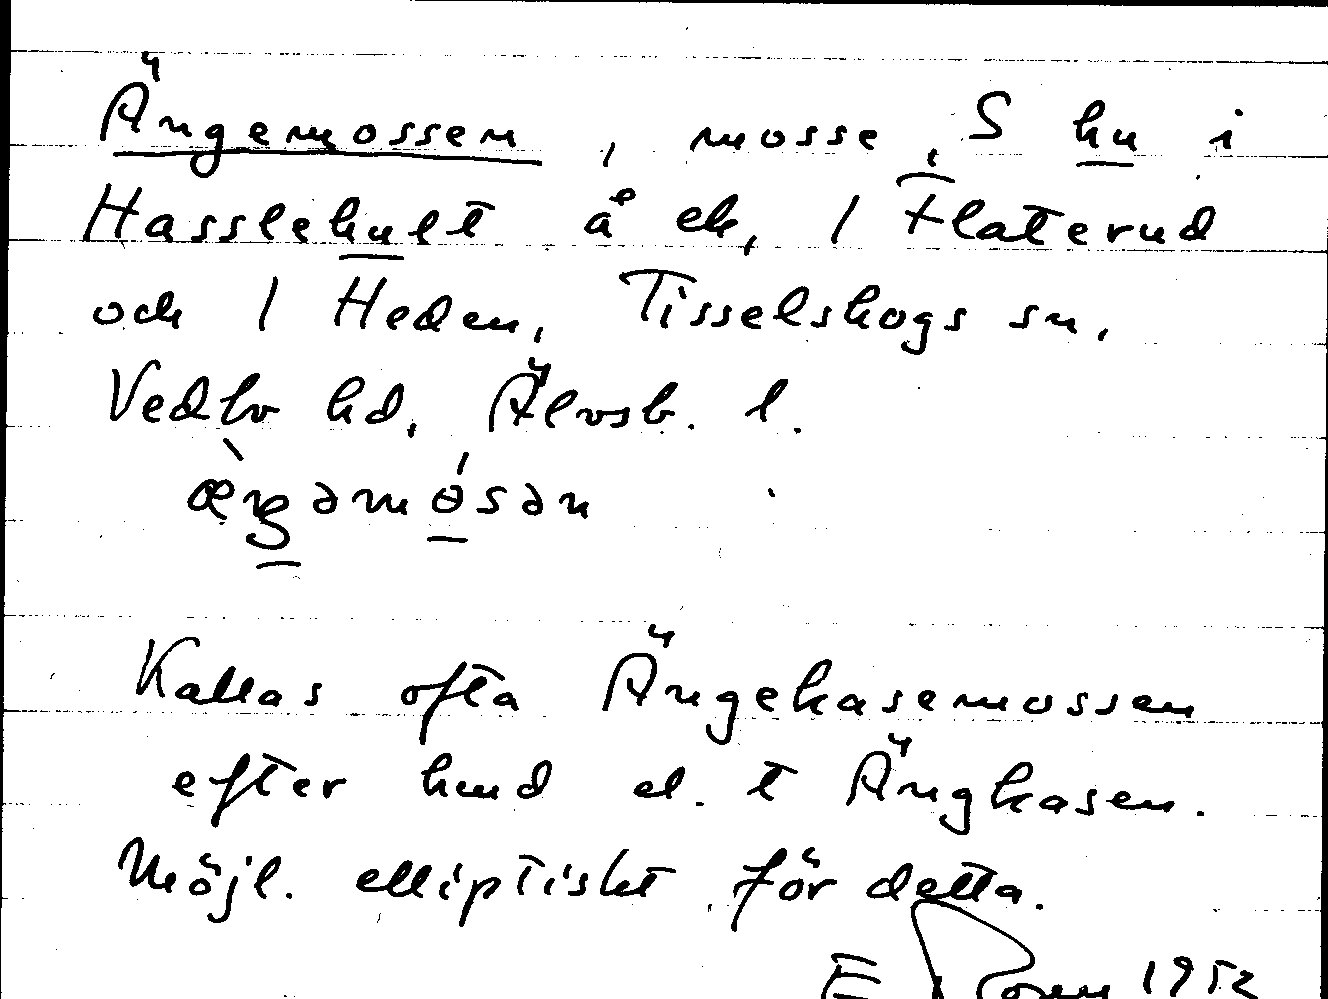 Ängemossen, mosse, S hu i
Hasslehult å ek, 1 Flaterud
och 1 Heden, Tisselskogs sn,
Vedbo hd, Älvsb. l.
æ̀ŋgəmósən
Kallas ofta Ängekasemossen
efter hmd el. t Ängkasen.
Möjl. elliptiskt för detta.
E 1952